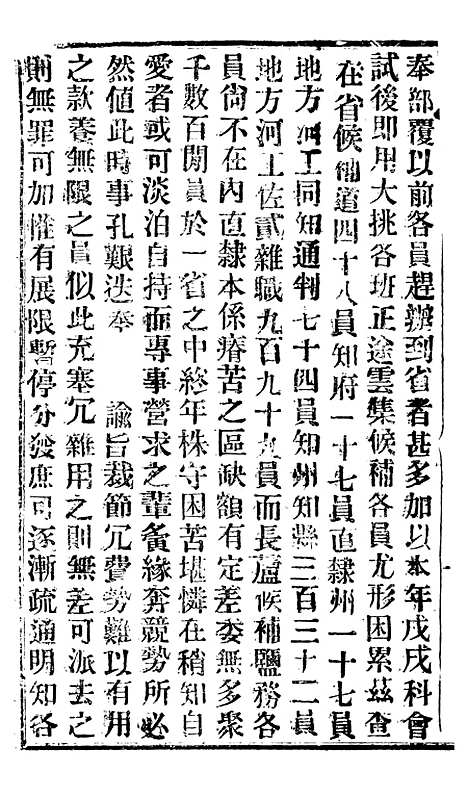 奉部覆以前各員趕辦到省者甚多加以本年戊戌科會
試後即用大挑各班正途雲集候補各員尤形困累茲查
在省候補道四十八員知府一十七員直隸州一十七員
地方河工同知通判七十四員知州知縣三百三十二員
地方河工佐貳雜職九百九十九員而長蘆候補鹽務各
員尙不在內直隸本係瘠苦之區缺額有定差委無多聚
千數百閒員於一省之中終年株守困苦堪憐在稍知自
愛者或可淡泊自持而專事營求之輩夤緣奔競勢所必
然値此時事孔艱迭奉 諭旨裁節冗費勢難以有用
之款養無限之員似此充塞冗雜用之則無差可派去之
則無罪可加惟有展限暫停分發庶可逐漸疏通明知各